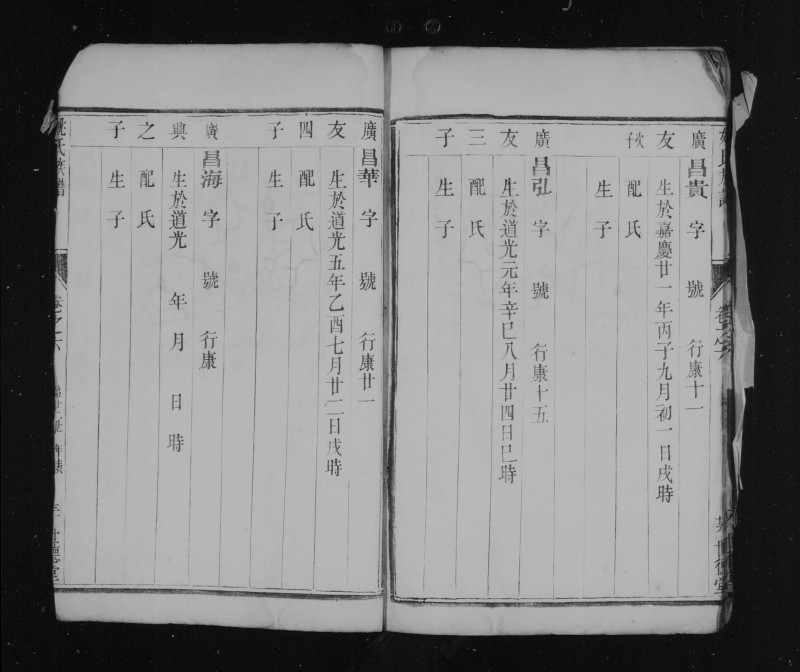 廣友次子
昌貴 字 號 行康十一
生於嘉慶廿一年丙子九月初一日戌時
配氏
生子
廣友三子
昌弘 字 號 行康十五
生於道光元年辛巳八月廿四日巳時
配氏
生子
廣友四子
昌華 字 號 行康廿一
生於道光五年乙酉七月廿二日戌時
配氏
生子
廣興之子
昌海 字 號 行康
生於道光 年 月 日 時
配氏
生子
氏族譜
卷之六
世德堂